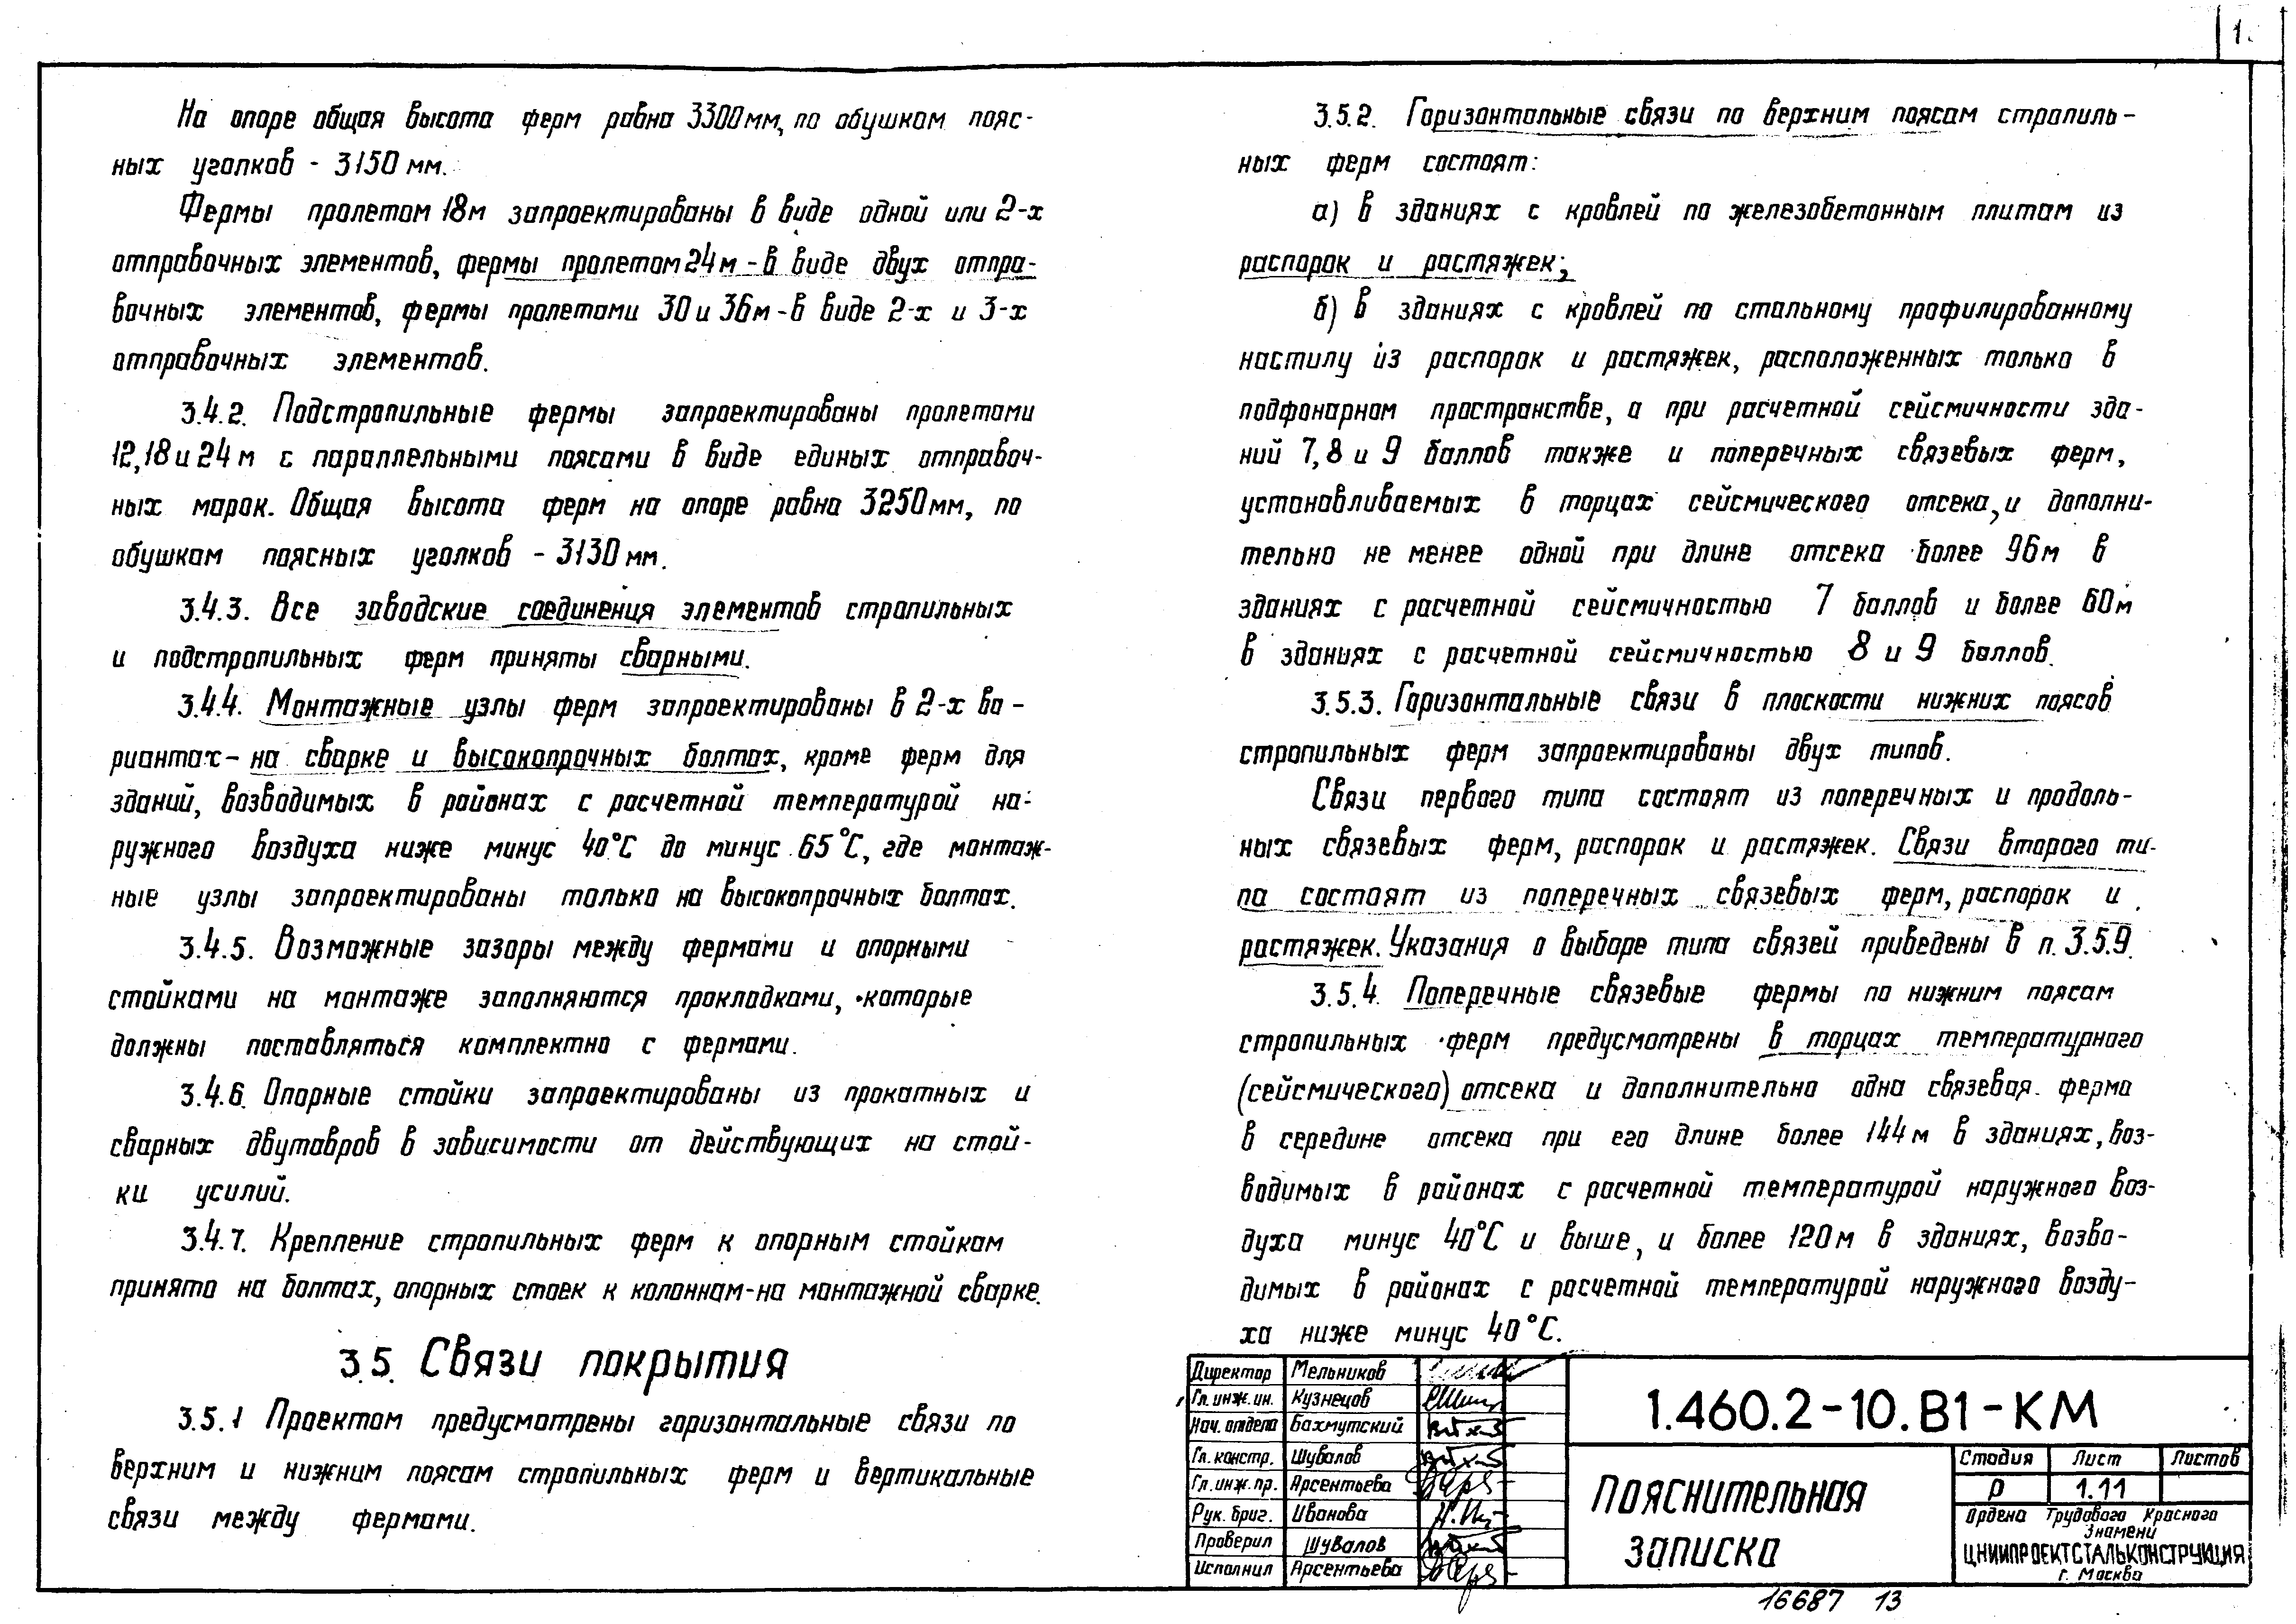 1
На опоре общая высота ферм равна 3300мм, по обушком пояс-
ных уголков - 3150 мм.
Фермы пролетом 18м запроектированы в виде одной или 2-х
отправочных элементов, фермы пролетом 24м - в виде двух отпра-
вочных элементов, фермы пролетами 30 и 36м - в виде 2-х и 3-х
отправочных элементов.
3.4.2. Подстропильные фермы запроектированы пролетами
12,18 и 24 м с параллельными поясами в виде единых отправоч-
ных марок. Общая высота ферм на опоре равна 3250мм, по
обушкам поясных уголков - 3130 мм.
3.4.3. Все заводские соединения элементов стропильных
и подстропильных ферм приняты сварными.
3.4.4. Монтажные узлы ферм запроектированы в 2-х ва-
риантах - на сварке и высокопрочных болтах, кроме ферм для
зданий, возводимых в районах с расчетной температурой на-
ружного воздуха ниже минус 40°С до минус 65°С, где монтаж-
ные узлы запроектированы только на высокопрочных болтах.
3.4.5. Возможные зазоры между фермами и опорными
стойками на монтаже заполняются прокладками, которые
должны поставляться комплектно с фермами.
3.4.6. Опорные стойки запроектированы из прокатных и
сварных двутавров в зависимости от действующих на стой-
ки усилий.
3.4.7. Крепление стропильных ферм к опорным стойкам
принято на болтах, опорных стоек к колоннам-на монтажной сварке.
3.5. Связи покрытия
3.5.1 Проектом предусмотрены горизонтальные связи по
верхним и нижним поясам стропильных ферм и вертикальные
связи между фермами.
3.5.2. Горизонтальные связи по верхним поясам стропиль-
ных ферм состоят:
а) в зданиях с кровлей по железобетонным плитам из
распорок и растяжек;
б) в зданиях с кровлей по стальному профилированному
настилу из распорок и растяжек, расположенных только в
подфонарном пространстве, а при расчетной сейсмичности зда-
ний 7, 8 и 9 баллов также и поперечных связевых ферм,
устанавливаемых в торцах сейсмического отсека, и дополни-
тельно не менее одной при длине отсека более 96м в
зданиях с расчетной сейсмичностью 7 баллов и более 60м
в зданиях с расчетной сейсмичностью 8 и 9 баллов.
3.5.3. Горизонтальные связи в плоскости нижних поясов
стропильных ферм запроектированы двух типов.
Связи первого типа состоят из поперечных и продоль-
ных связевых ферм, распорок и растяжек. Связи второго ти-
па состоят из поперечных связевых ферм, распорок и
растяжек. Указания о выборе типа связей приведены в п. 3.5.9.
3.5.4. Поперечные связевые фермы по нижним поясам
стропильных ферм предусмотрены в торцах температурного
(сейсмического) отсека и дополнительно одна связевая ферма
в середине отсека при его длине более 144 м в зданиях, воз-
водимых в районах с расчетной температурой наружного воз-
духа минус 40°С и выше, и более 120м в зданиях, возво-
димых в районах с расчетной температурой наружного возду-
ха ниже минус 40°С.
Директор Мельников
Гл. инж. ин. Кузнецов
Нач. отдела Бахмутский
Гл. констр. Шувалов
Гл. инж. пр. Арсентьева
Рук. бриг. Иванова
Проверил Шувалов
Исполнил Арсентьева
1.460.2-10.В1-КМ
Пояснительная
записка
Стадия Лист Листов
Р 1.11
Ордена Трудового Красного
Знамени
ЦНИИПРОЕКТСТАЛЬКОНСТРУКЦИЯ
г. Москва
16687 13